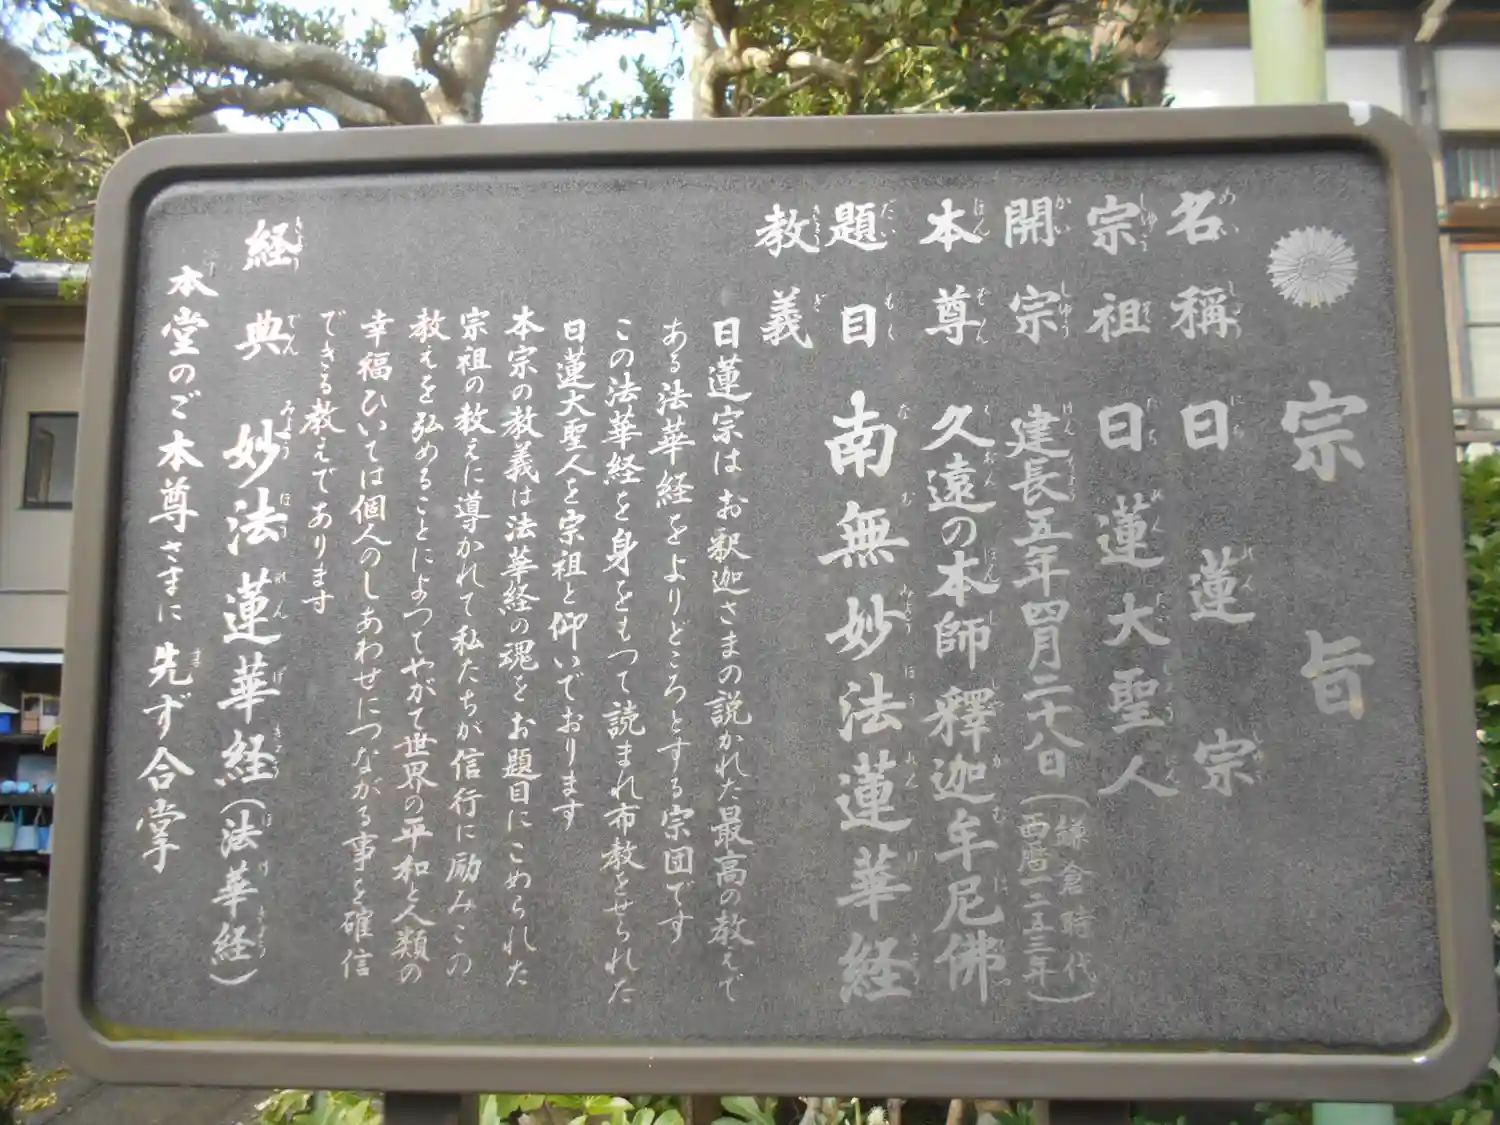 宗旨
名稱 日蓮宗
宗祖 日蓮大聖人
開宗 建長五年四月二十八日(鎌倉時代)(西暦一二五三年)
本尊 久遠の本師釋迦牟尼佛
題目 南無妙法蓮華経
教義
日蓮宗はお釈迦さまの説かれた最高の教えで
ある法華経をよりどころとする宗団です
この法華経を身をもって読まれ布教をせられた
日蓮大聖人を宗祖と仰いでおります
本宗の教義は法華経の魂をお題目にこめられた
宗祖の教えに導かれて私たちが信行に励みこの
教えを弘めることによってやがて世界の平和と人類の
幸福ひいては個人のしあわせにつながる事を確信
できる教えであります
経典 妙法蓮華経(法華経)
本堂のご本尊さまに 先ず合掌